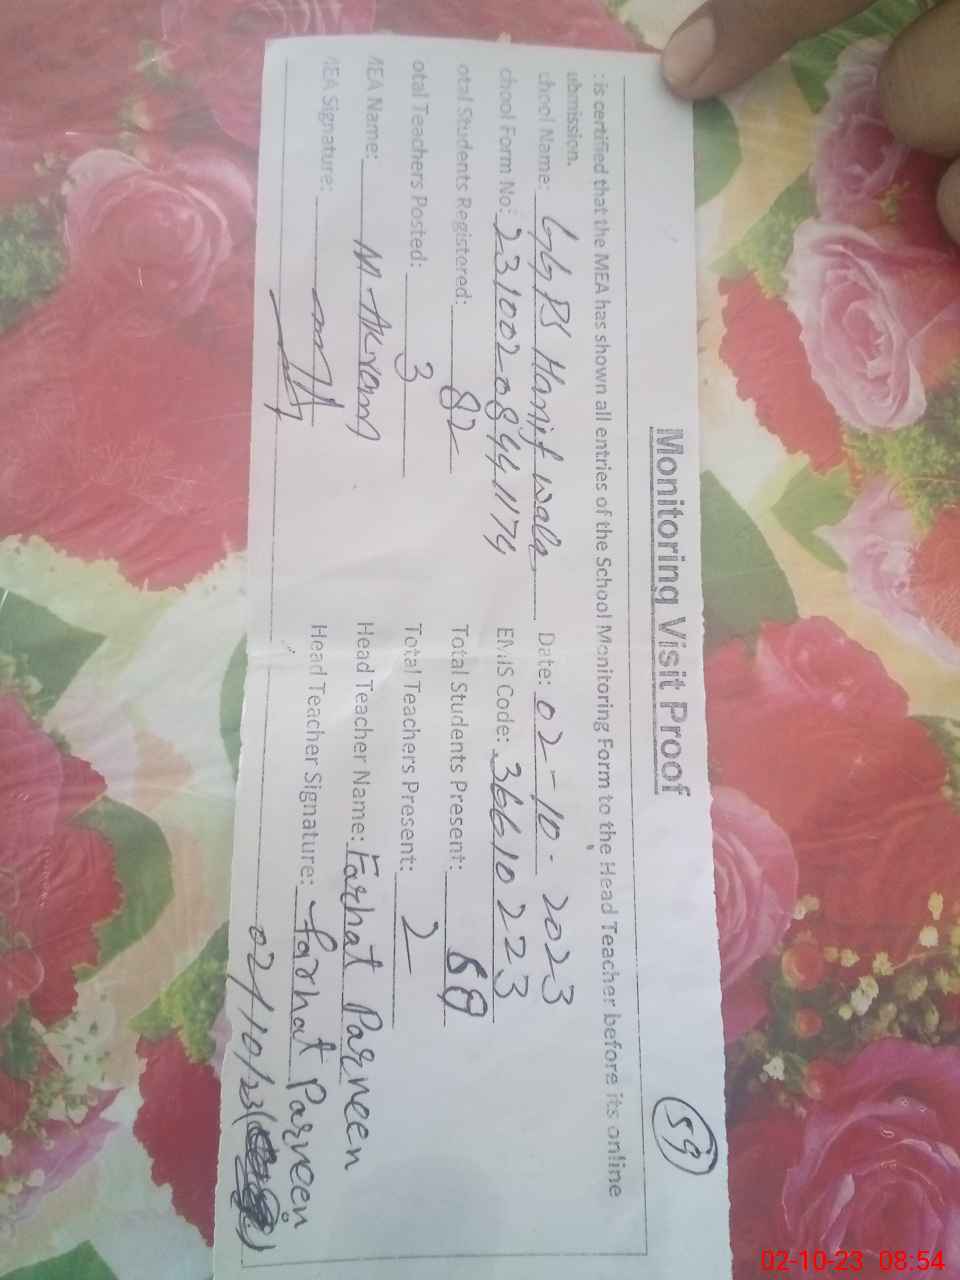 Monitoring Visit Proof
59
: is certified that the MEA has shown all entries of the School Monitoring Form to the Head Teacher before its online
ubmission.
chool Name: GGPS Hanif wala Date: 02-10-2023
chool Form No: 23100208441174 EMIS Code: 36610223
otal Students Registered: 82 Total Students Present:
otal Teachers Posted: 3 Total Teachers Present: 2
MEA Name: M-Akram Head Teacher Name: Farhat Parveen
MEA Signature: Head Teacher Signature: Farhat Parveen
02/10/23
02-10-23 08:54